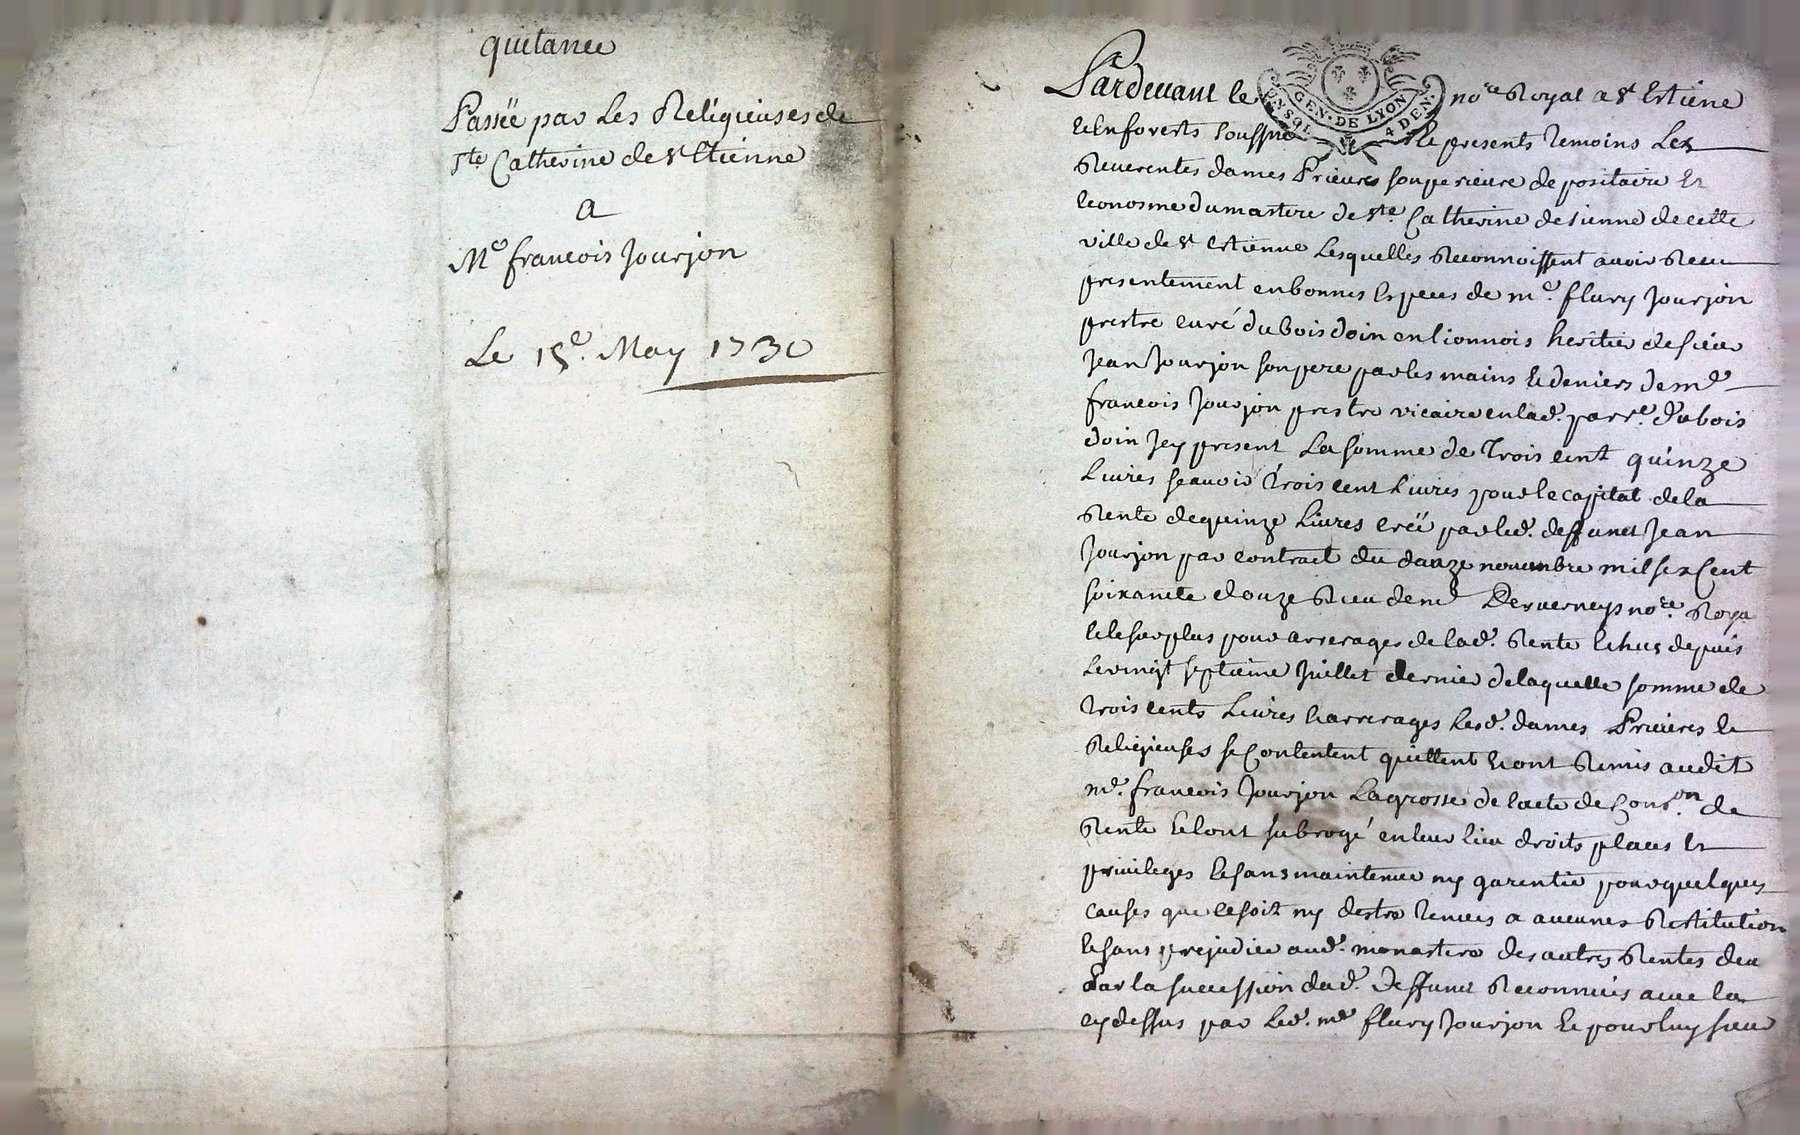 quitance
Passée par Les Religieuses de
Ste Catherine de St Etienne
A
Me francois Jourjon
Le 15e. May 1730
Pardevant le nore Royal a St Estiene
en forests soussne presents temoins Les
Reverentes dames Prieure souperieure depositaire et
econosme du mastere de Ste Catherine de sienne de cette
ville de St estienne Lesquelles Reconnoissent avoir Receu
presentement en bonnes Especes de me. flury Jourjon
prestre curé du bois doin en lionnois heritier de sieur
Jean Jourjon son pere par les mains et deniers de me
francois Jourjon prestre vicaire en lad. parre. du bois
doin Jcy present La somme de trois cent quinze
Livres scavoir trois cent Livres pour le capital de la
Rente de quinze Livres creé par led. deffunct Jean
Jourjon par contract du douze novembre mil six Cent
soixante douze Receu de me Deverneys nore. Roya
et le surplus pour arrerages de lad. Rente Echus depuis
Le vingt septieme Juillet dernier de laquelle somme de
trois cents Livres et arrerages Lesd. dames Prieures et
Religieuses se Contentent quittent et ont Remis audit
me. francois Jourjon La grosse de l'acte de Conson. de
Rente et lont subrogé en leur lieu droits places et
privileges et sans maintenue ny garentie pour quelques
causes que ce soit ny destre tenues a aucunes Restitution
et sans prejudice aud. monastere des autres Rentes deu
Par la succession dud. deffunct Reconnues avec la
cy dessus par Led. me flury Jourjon et pour luy sieur
GEN. DE LYON
UN SOL 4 DEN.